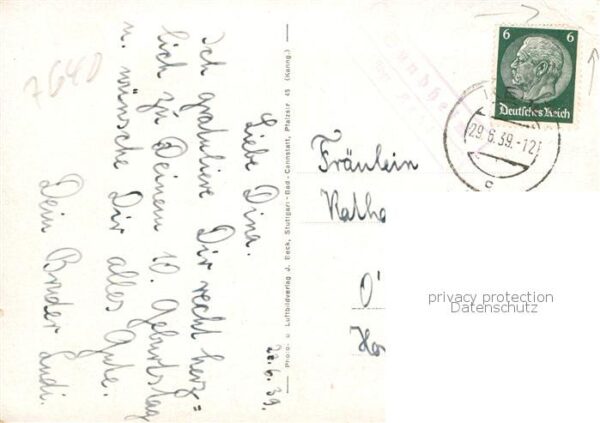 Liebe Dina.
Ich gratuliere Dir recht herz=
lich zu Deinem 10. Geburtstag
u. wünsche Dir alles Gute.
Dein Bruder Ludi.
29.6.39.
7640
Photo- u Luftbildverlag J. Beck, Stuttgart-Bad-Cannstatt, Pfalzstr. 45 (Kanng.)
6 6
Deutsches Reich
29.6.39.-12
Fräulein
Katha
O'
privacy protection
Datenschutz